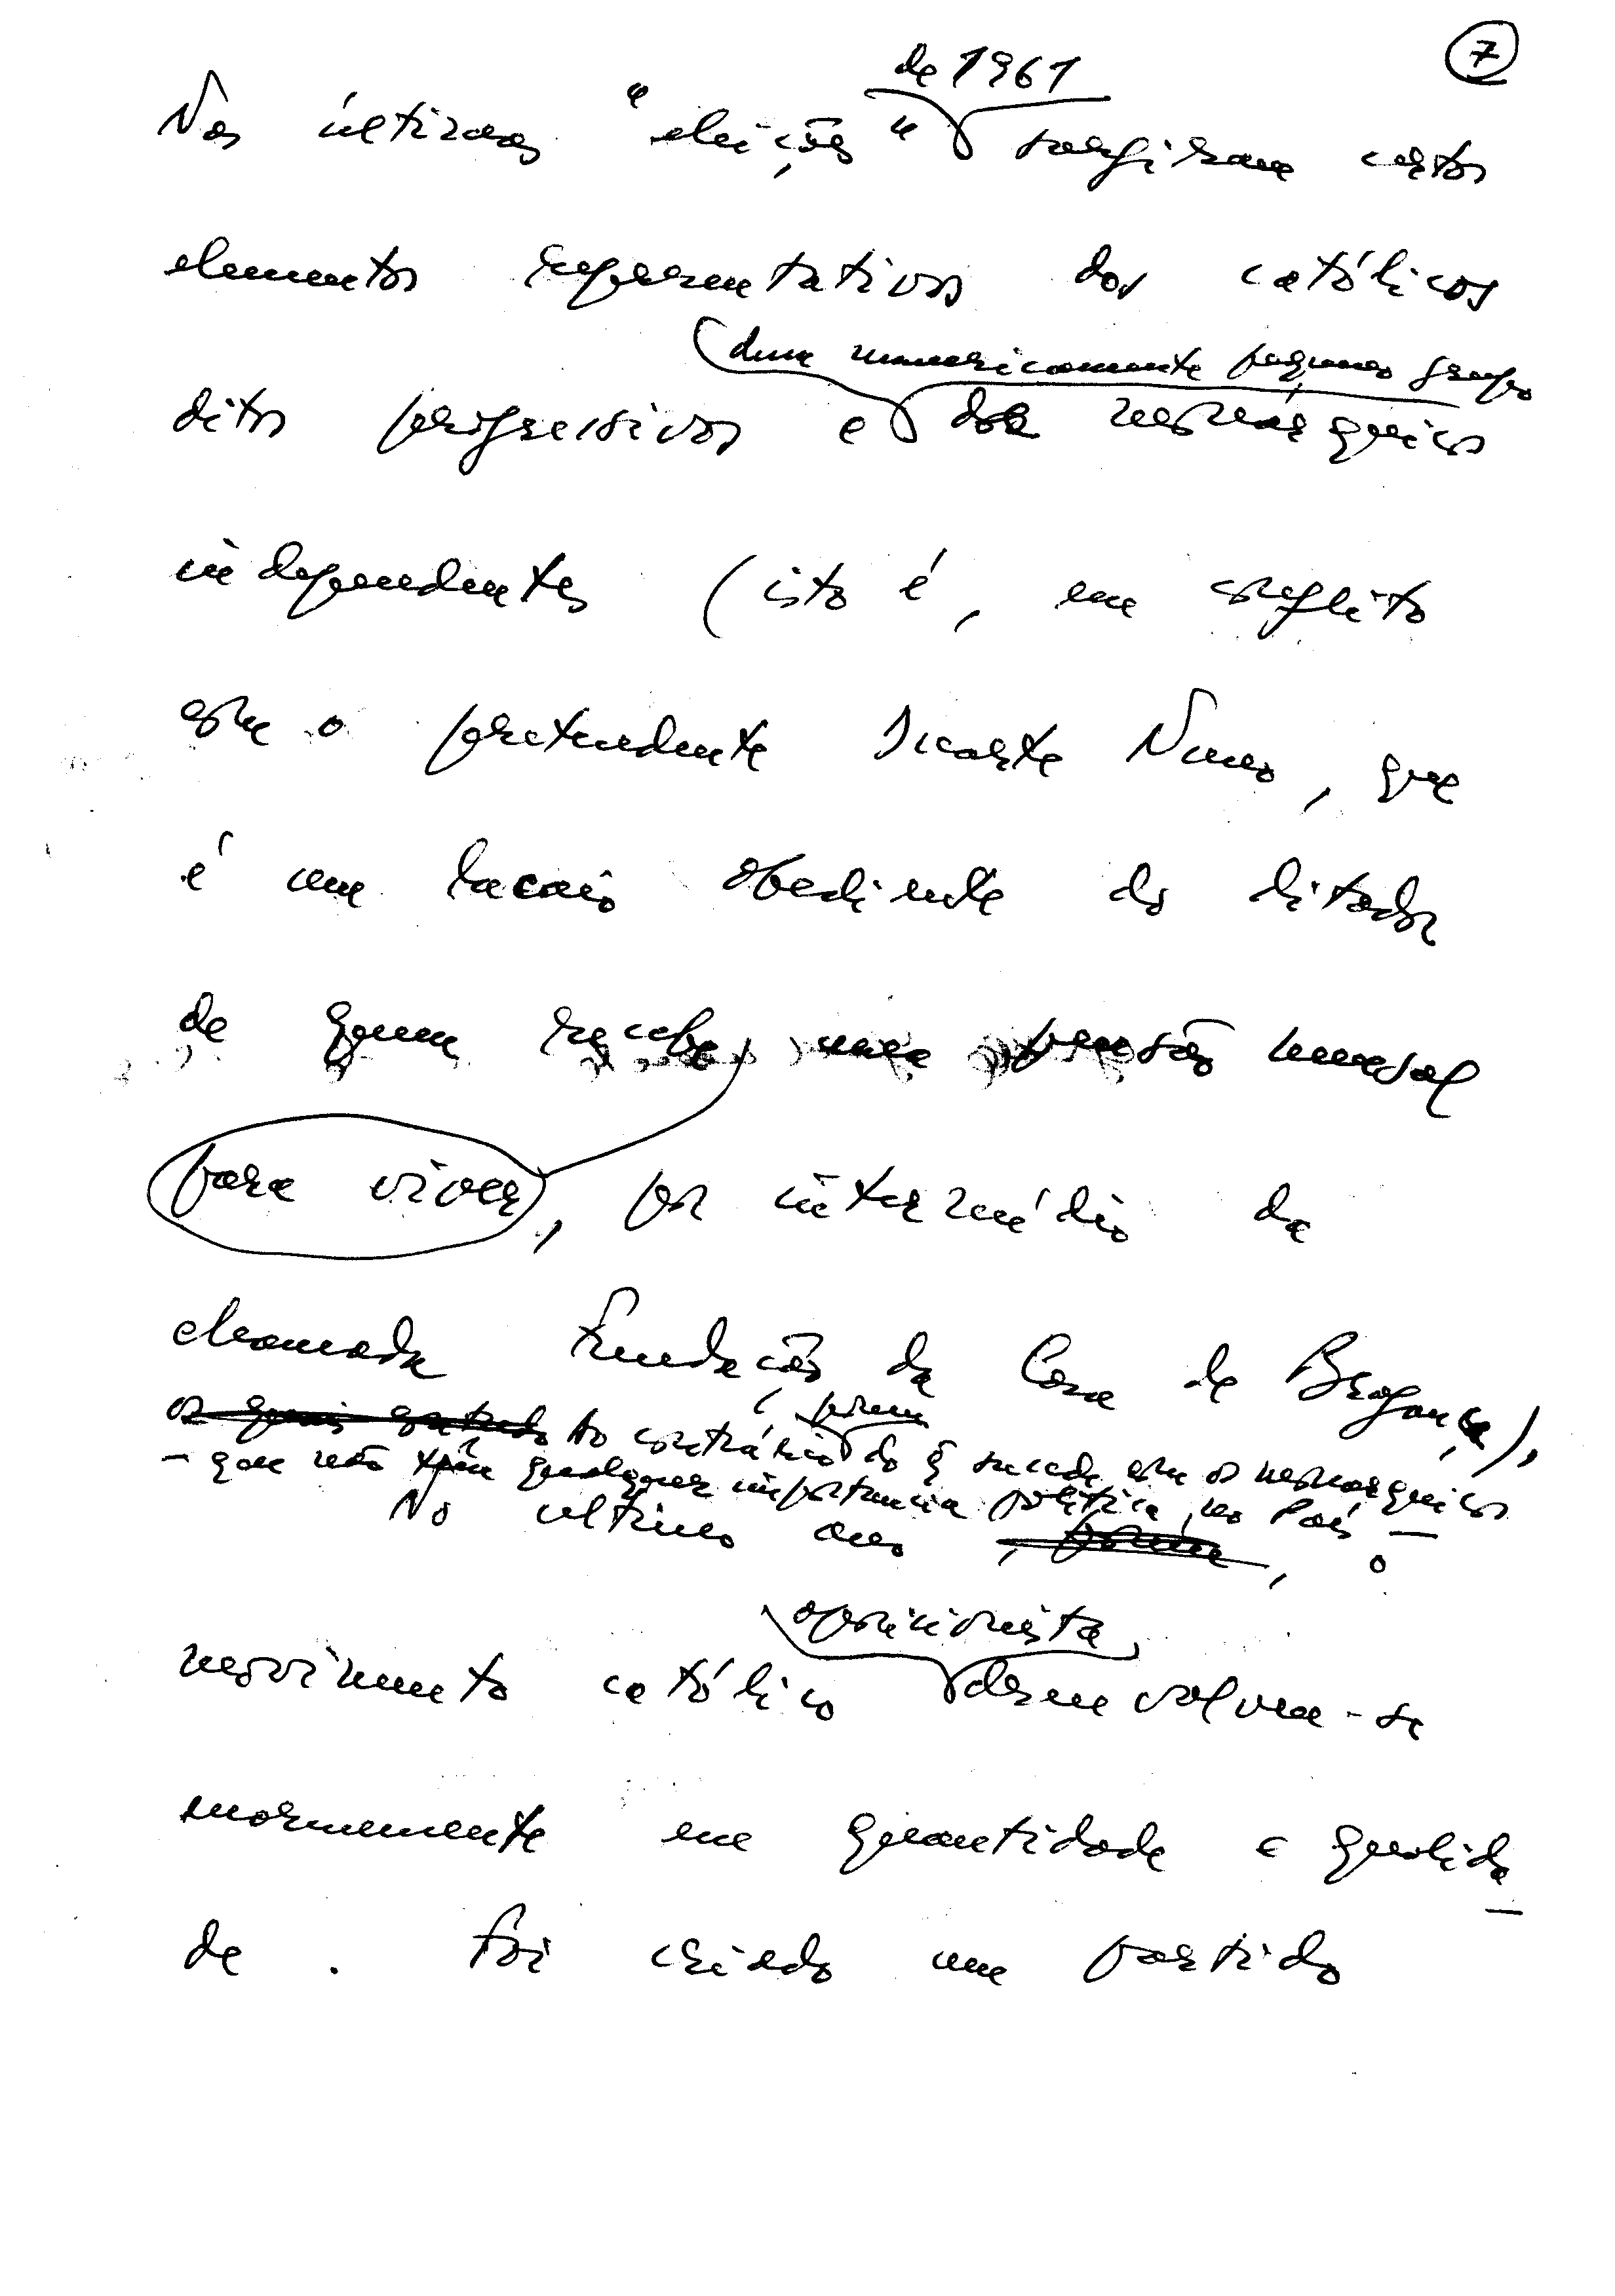 7
de 1961
Nas últimas "eleições" surgiram certos
elementos representativos dos católicos
dum numericamente pequeno grupo
ditos progressivos e de monárquicos
independentes (isto é, em conflito
com o pretendente Duarte Nuno, que
é um lacaio obediente do ditador
de quem recebe uma pensão mensal
para viver, por intermédio da
chamada Fundação da Casa de Bragança),
porém
os quais contudo Ao contrário do q sucede com os monárquicos
– que não têm qualquer importancia politica no País –
No ultimo ano, porém, o
oposicionista
movimento católico desenvolveu-se
enormemente em quantidade e qualida
de. Foi criado um partido